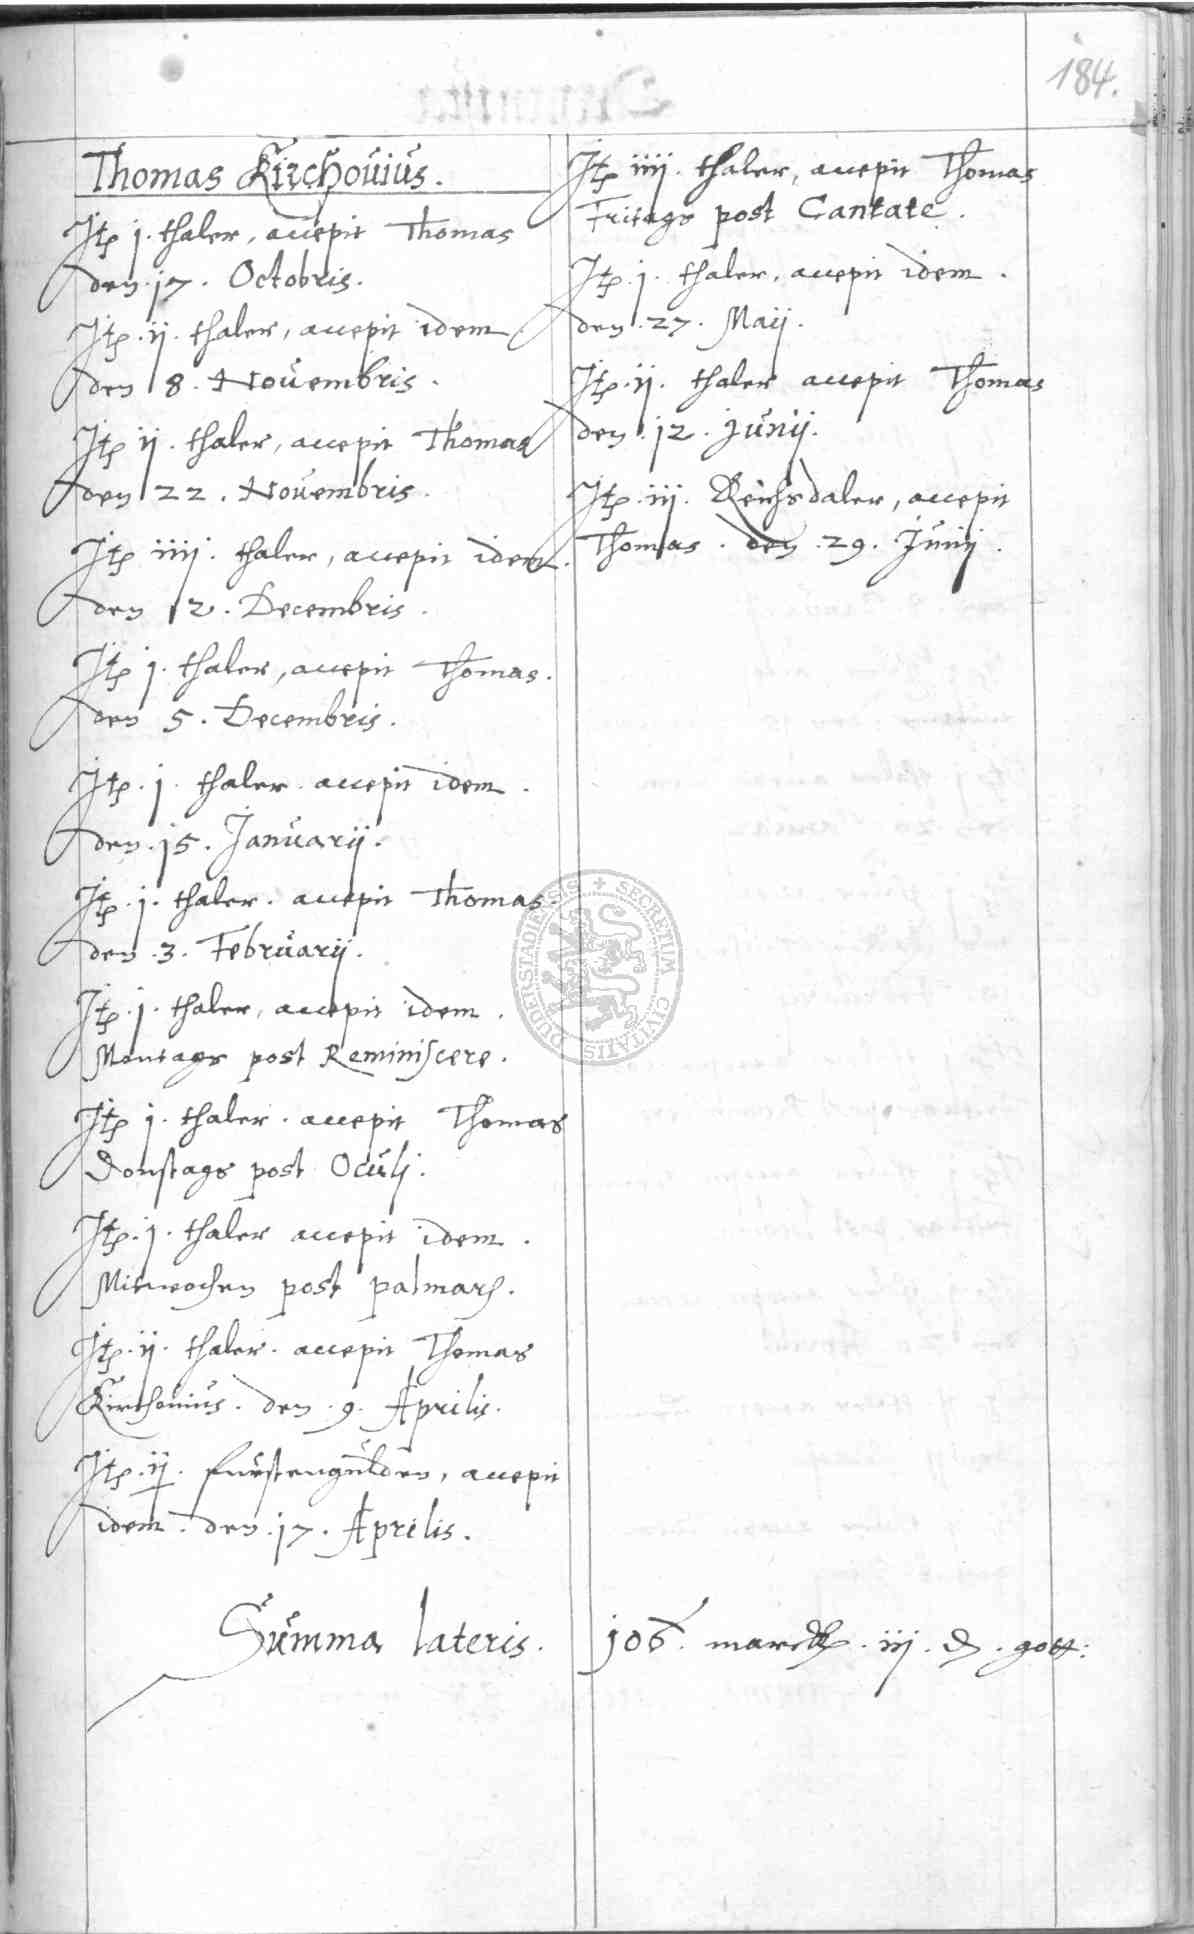 184.
Thomas Kirchouius.
Itē j. thaler, accepit Thomas
den .17. Octobris.
Itē .ij. thaler, accepit idem
den 8. Nouembris.
Itē ij. thaler, accepit Thomas
den 22. Nouembris.
Itē iiij. thaler, accepit idem.
den 12. Decembris.
Itē j. thaler, accepit Thomas.
den 5. Decembris.
Itē .j. thaler accepit idem.
den .15. Januarij.
Itē .j. thaler. accepit Thomas.
den .3. Februarij.
Itē .j. thaler, accepit idem.
Montags post Reminiscere.
Itē j. thaler. accepit Thomas
Donstags post Oculj.
Itē .j. thaler accepit idem.
Mitwochen post palmarū.
Itē .ij. thaler. accepit Thomas
Kirchouius. den .9. Aprilis.
Itē .ij. furstengulden, accepit
idem. den .17. Aprilis.
Itē iiij. thaler, accepit Thomas
Fritags post Cantate.
Itē .j. thaler, accepit idem.
den .27. Maij.
Itē .ij. thaler accepit Thomas
den .12. Junij.
Itē .iij. Reichsdaler, accepit
Thomas. den .29. Junij.
SECRETUM CIVITATIS DUDERSTADIENSIS
Summa lateris. 106. marck. iij. d. gott: